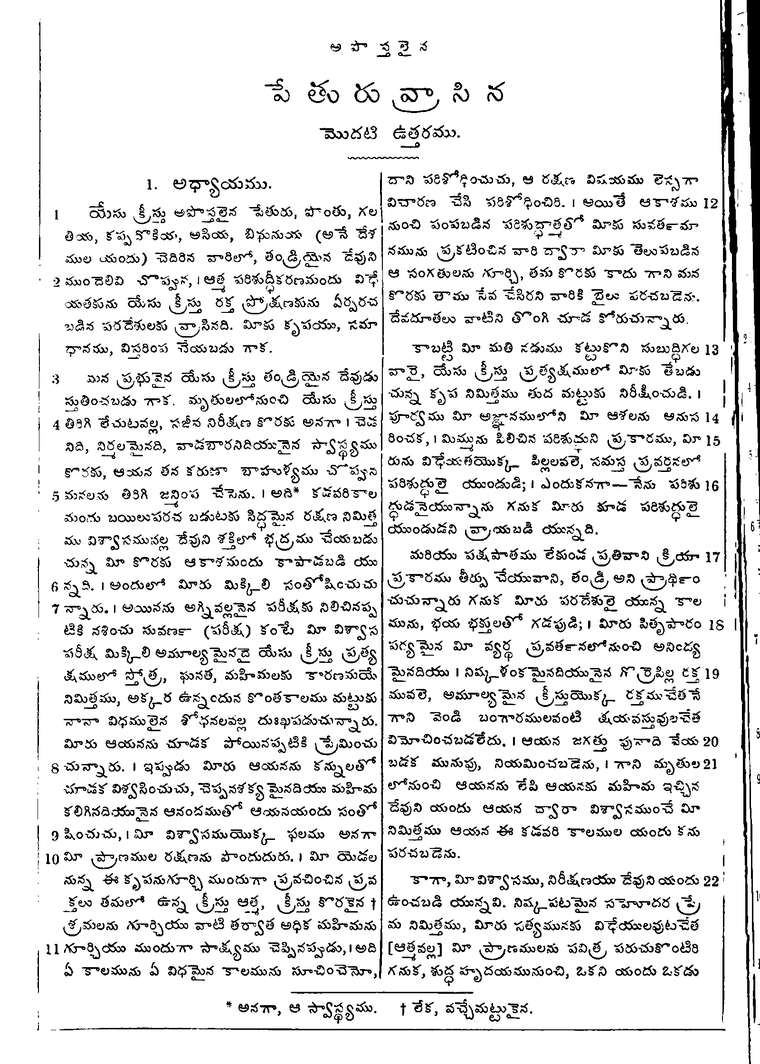 అపొస్తలైన
పేతురు వ్రాసిన
మొదటి ఉత్తరము.
1. అధ్యాయము.
1 యేసు క్రీస్తు అపొస్తలైన పేతురు, పొంతు, గల
తియ, కప్పదొకియ, అసియ, బిథునియ (అనే దేశ
ముల యందు) చెదిరిన వారిలో, తండ్రియైన దేవుని
2 ముందెలివి చొప్పున, । ఆత్మ పరిశుద్ధీకరణమందు విధే
యతకును యేసు క్రీస్తు రక్త ప్రోక్షణకును ఏర్పరచ
బడిన పరదేశులకు వ్రాసినది. మీకు కృపయు, సమా
ధానము, విస్తరింప చేయబడు గాక.
3 మన ప్రభువైన యేసు క్రీస్తు తండ్రియైన దేవుడు
స్తుతించబడు గాక. మృతులలోనుంచి యేసు క్రీస్తు
4 తిరిగి లేచుటవల్ల, సజీవ నిరీక్షణ కొరకు అనగా । చెడ
నిది, నిర్మలమైనది, వాడబారనిదియునైన స్వాస్థ్యము
కొరకు, ఆయన తన కరుణా బాహుళ్యము చొప్పున
5 మనలను తిరిగి జన్మింప చేసెను. । అది* కడవరికాల
మందు బయిలుపరచ బడుటకు సిద్ధమైన రక్షణ నిమిత్త
ము విశ్వాసమువల్ల దేవుని శక్తిలో భద్రము చేయబడు
చున్న మీ కొరకు ఆకాశమందు కాపాడబడి యు
6 న్నది. । అందులో మీరు మిక్కిలి సంతోషించుచు
7 న్నారు. । అయినను అగ్నివల్లనైన పరీక్షకు నిలిచినప్ప
టికి నశించు సువర్ణ (పరీక్ష) కంటే మీ విశ్వాస
పరీక్ష మిక్కిలి అమూల్యమైనదై యేసు క్రీస్తు ప్రత్య
క్షములో స్తోత్ర, ఘనత, మహిమలకు కారణమయే
నిమిత్తము, అక్కర ఉన్నందున కొంతకాలము మట్టుకు
నానా విధములైన శోధనలవల్ల దుఃఖపడుచున్నారు.
మీరు ఆయనను చూడక పోయినప్పటికి ప్రేమించు
8 చున్నారు. । ఇప్పుడు మీరు ఆయనను కన్నులతో
చూడక విశ్వసించుచు, చెప్పనశక్యమైనదియు మహిమ
కలిగినదియునైన ఆనందముతో ఆయనయందు సంతో
9 షించుచు, । మీ విశ్వాసముయొక్క ఫలము అనగా
10 మీ ప్రాణముల రక్షణను పొందుదురు. । మీ యెడల
నున్న ఈ కృపనుగూర్చి ముందుగా ప్రవచించిన ప్రవ
క్తలు తమలో ఉన్న క్రీస్తు ఆత్మ, క్రీస్తు కొరకైన †
శ్రమలను గూర్చియు వాటి తర్వాత అధిక మహిమను
11 గూర్చియు ముందుగా సాక్ష్యము చెప్పినప్పుడు, । అది
ఏ కాలమును ఏ విధమైన కాలమును సూచించెనో,
దాని పరిశోధించుచు, ఆ రక్షణ విషయము లెస్సగా
విచారణ చేసి పరిశోధించిరి. । అయితే ఆకాశము 12
నుంచి పంపబడిన పరిశుద్ధాత్మతో మీకు సువర్తమా
నమును ప్రకటించిన వారి ద్వారా మీకు తెలుపబడిన
ఆ సంగతులను గూర్చి, తమ కొరకు కాదు గాని మన
కొరకు తాము సేవ చేసిరని వారికి బైలు పరచబడెను.
దేవదూతలు వాటిని తొంగి చూడ కోరుచున్నారు.
కాబట్టి మీ మతి నడుము కట్టుకొని సుబుద్ధిగల 13
వారై, యేసు క్రీస్తు ప్రత్యక్షములో మీకు తేబడు
చున్న కృప నిమిత్తము తుద మట్టుకు నిరీక్షించుడి. ।
పూర్వము మీ అజ్ఞానములోని మీ ఆశలను అనుస 14
రించక, । మిమ్మును పిలిచిన పరిశుద్ధుని ప్రకారము, మీ 15
రును విధేయతయొక్క పిల్లలవలె, సమస్త ప్రవర్తనలో
పరిశుద్ధులై యుండుడి; । ఎందుకనగా—నేను పరిశు 16
ద్ధుడనైయున్నాను గనుక మీరు కూడ పరిశుద్ధులై
యుండుడని వ్రాయబడి యున్నది.
మరియు పక్షపాతము లేకుండ ప్రతివాని క్రియా 17
ప్రకారము తీర్పు చేయువాని, తండ్రి అని ప్రార్థిం
చుచున్నారు గనుక మీరు పరదేశులై యున్న కాల
మును, భయ భక్తులతో గడపుడి; । మీరు పితృపారం 18
పర్యమైన మీ వ్యర్థ ప్రవర్తనలోనుంచి అనింద్య
మైనదియు । నిష్కళంకమైనదియునైన గొర్రెపిల్ల రక్త 19
మువలె, అమూల్యమైన క్రీస్తుయొక్క రక్తముచేతనే
గాని వెండి బంగారములవంటి క్షయవస్తువులచేత
విమోచించబడలేదు. । ఆయన జగత్తు పునాది వేయ 20
బడక మునుపు, నియమించబడెను, । గాని మృతుల 21
లోనుంచి ఆయనను లేపి ఆయనకు మహిమ ఇచ్చిన
దేవుని యందు ఆయన ద్వారా విశ్వాసముంచే మీ
నిమిత్తము ఆయన ఈ కడవరి కాలముల యందు కను
పరచబడెను.
కాగా, మీ విశ్వాసము, నిరీక్షణయు దేవుని యందు 22
ఉంచబడి యున్నవి. నిష్కపటమైన సహోదర ప్రే
మ నిమిత్తము, మీరు సత్యమునకు విధేయులవుటచేత
[ఆత్మవల్ల] మీ ప్రాణములను పవిత్ర పరుచుకొంటిరి
గనుక, శుద్ధ హృదయమునుంచి, ఒకని యందు ఒకడు
* అనగా, ఆ స్వాస్థ్యము. † లేక, వచ్చేమట్టుకైన.